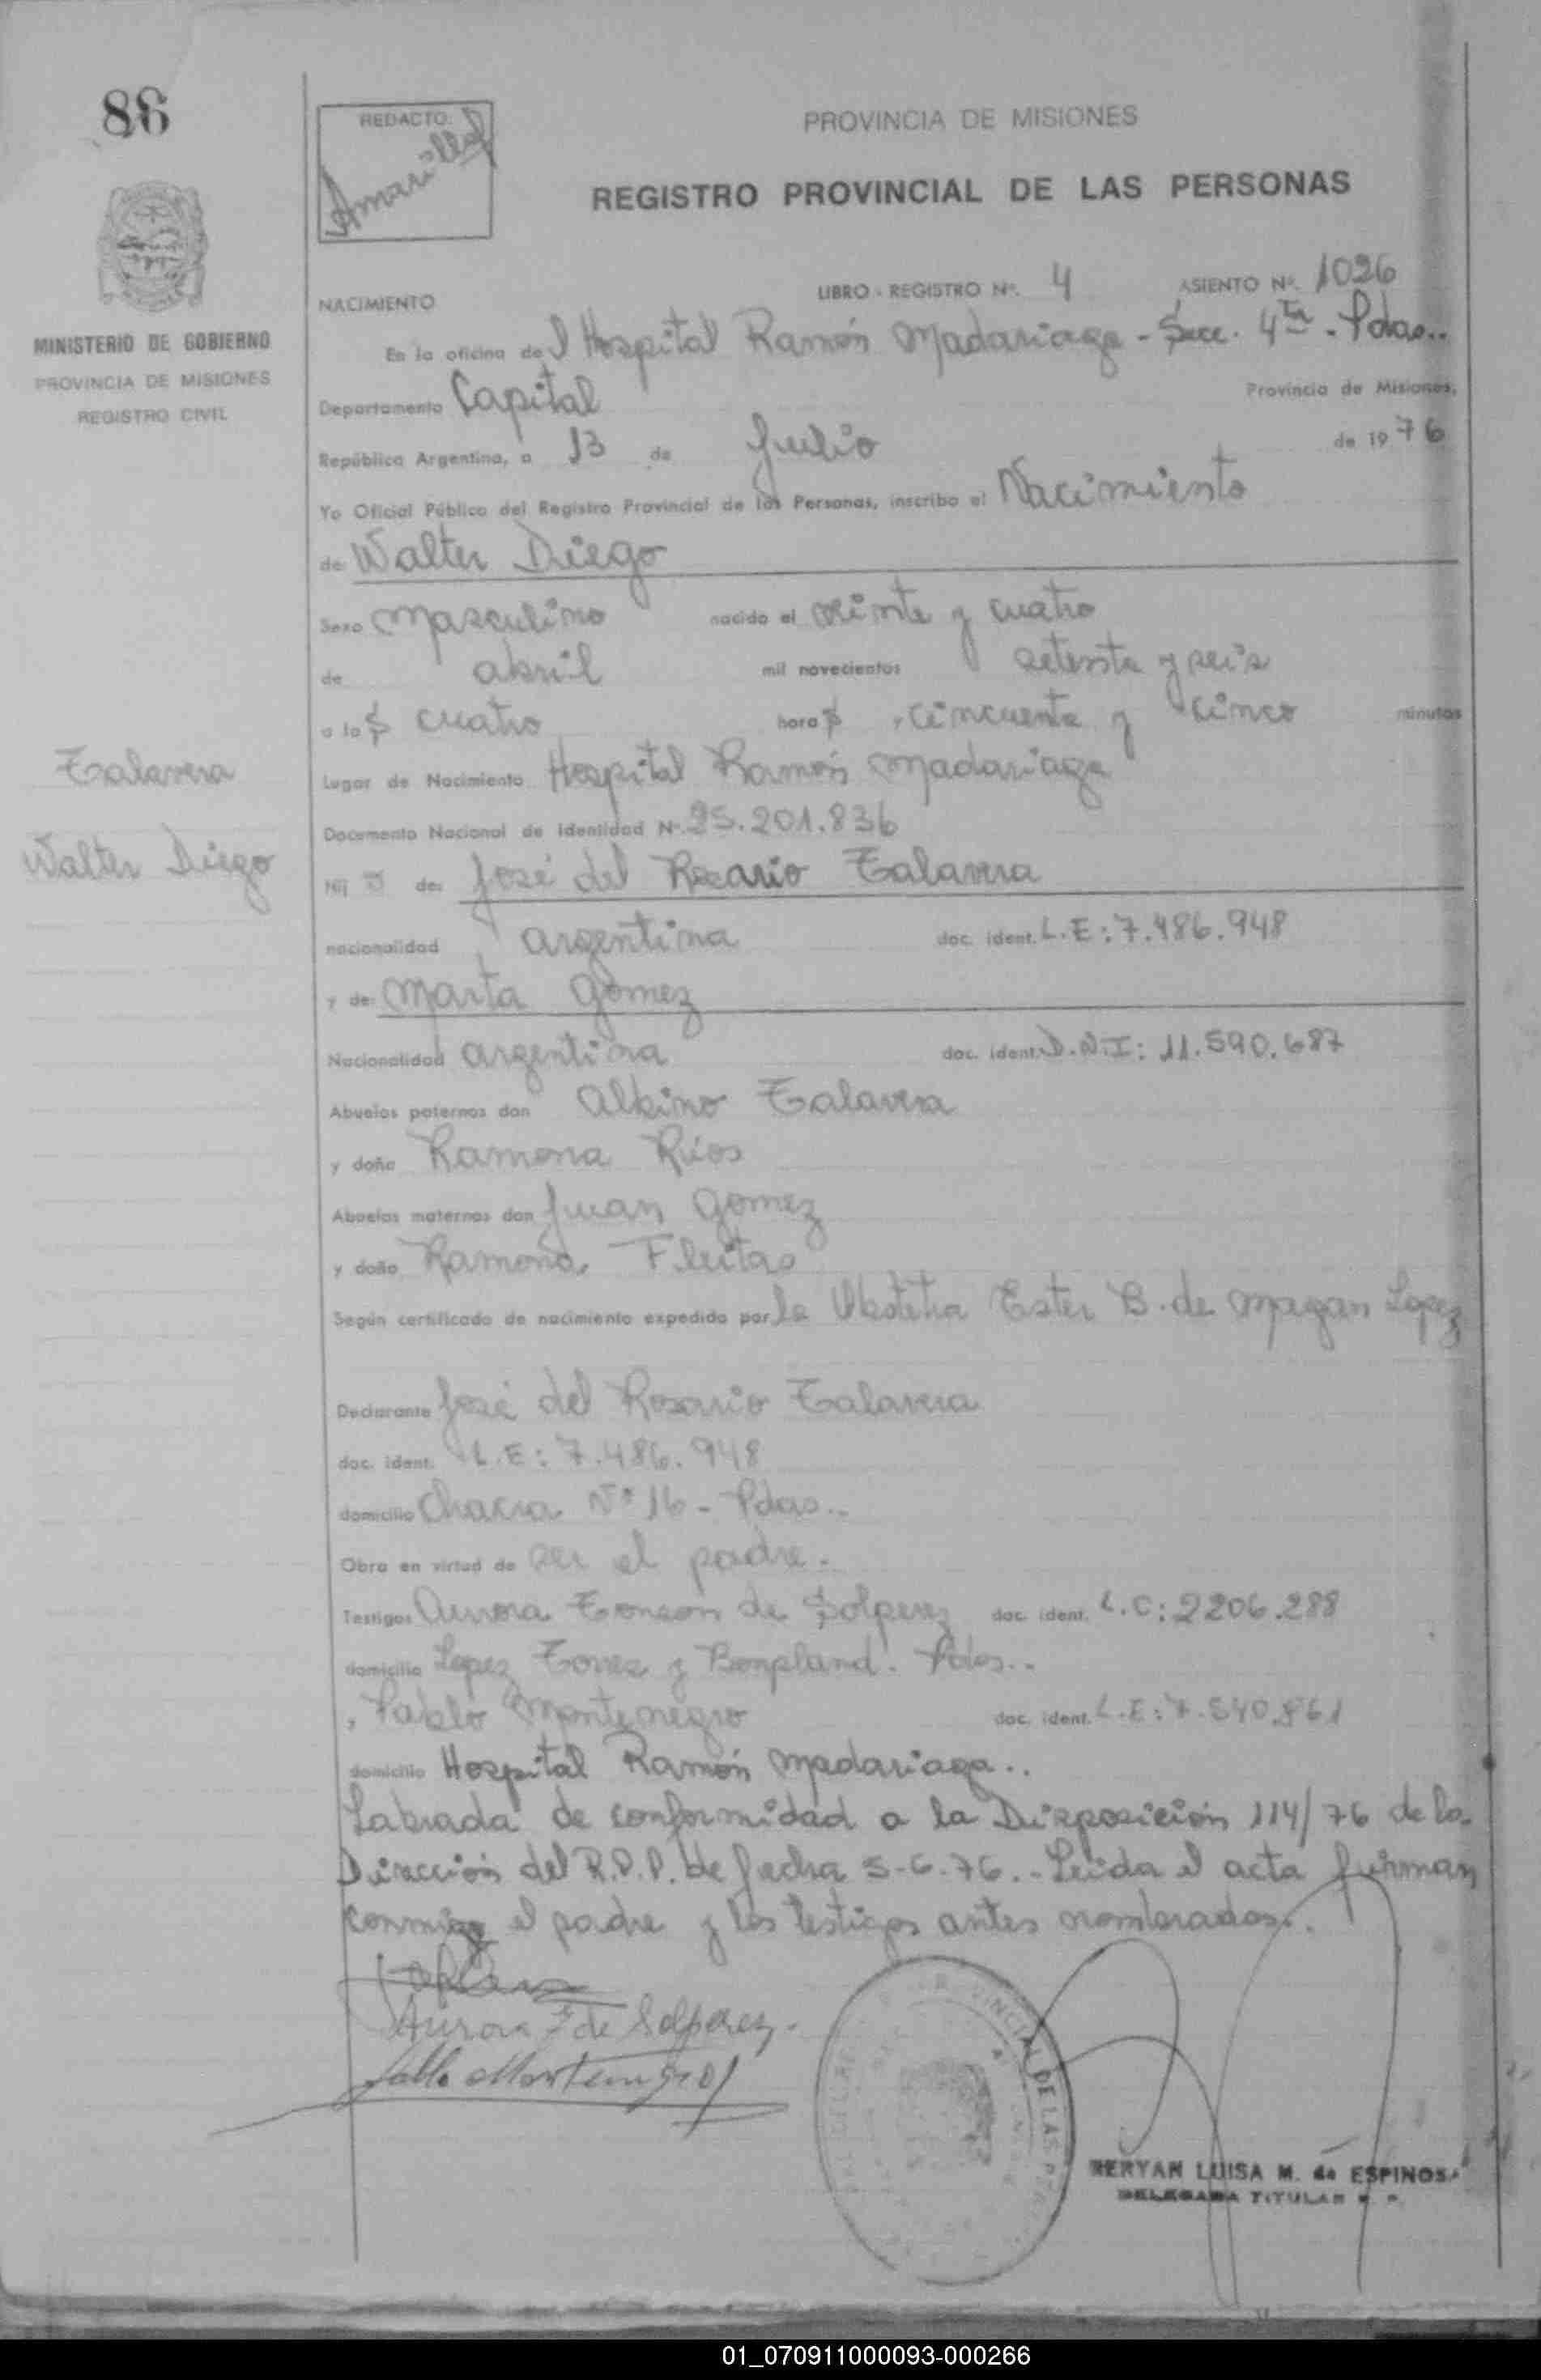 86
REDACTO:
Amarilla
PROVINCIA DE MISIONES
REGISTRO PROVINCIAL DE LAS PERSONAS
MINISTERIO DE GOBIERNO
PROVINCIA DE MISIONES
REGISTRO CIVIL
NACIMIENTO LIBRO - REGISTRO Nº. 4 ASIENTO Nº. 1026
En la oficina del Hospital Ramón Madariaga - Secc. 4ta - Pdas..
Departamento Capital Provincia de Misiones,
República Argentina, a 13 de Julio de 1976
Yo Oficial Público del Registro Provincial de las Personas, inscribo el Nacimiento
de: Walter Diego
Sexo Masculino nacido el veinte y cuatro
de abril mil novecientos setenta y seis
a las cuatro horas, cincuenta y cinco minutos
Talavera
Walter Diego
Lugar de Nacimiento Hospital Ramón Madariaga
Documento Nacional de Identidad Nº 25.201.836
Hijo de: José del Rosario Talavera
nacionalidad argentina doc. ident. L.E: 7.486.948
y de: Marta Gómez
Nacionalidad argentina doc. ident. D.N.I: 11.590.687
Abuelos paternos don Albino Talavera
y doña Ramona Ríos
Abuelos maternos don Juan Gomez
y doña Ramona Fleitas
Según certificado de nacimiento expedido por la Obstetra Ester B. de Magan Lopez
Declarante José del Rosario Talavera
doc. ident. L.E: 7.486.948
domicilio Chacra Nº 16 - Pdas..
Obra en virtud de ser el padre.
Testigos Aurora de Solperez doc. ident. L.C: 2206.288
domicilio Lopez Torres y Bonpland. Pdas..
, Pablo Montenegro doc. ident. L.E: 7.540.861
domicilio Hospital Ramón Madariaga..
Labrada de conformidad a la Disposición 114/76 de la
Dirección del R.P.P. de fecha 5-6-76.. Leida el acta firman
conmigo el padre y los testigos antes nombrados..
Aurora T de Solperez.
Pablo Montenegro
PROVINCIAL DE LAS
LUISA M. de ESPINOSA
DELEGADA TITULAR
01_070911000093-000266